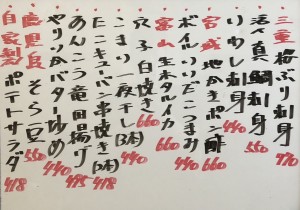 三重 梅ぶり刺身 770
活〆真鯛刺身 550
いわし刺身 440
宮城 地かきポン酢 660
ボイルいいだこつまみ 440
富山 生本タルイカ 660
穴子白焼き 660
こまい一夜干し(3本) 440
たこキューバン串焼き(3本) 418
あんこう竜田揚げ 495
やりいかバター炒め 440
鹿児島 そら豆 550
自家製 ポテトサラダ 418